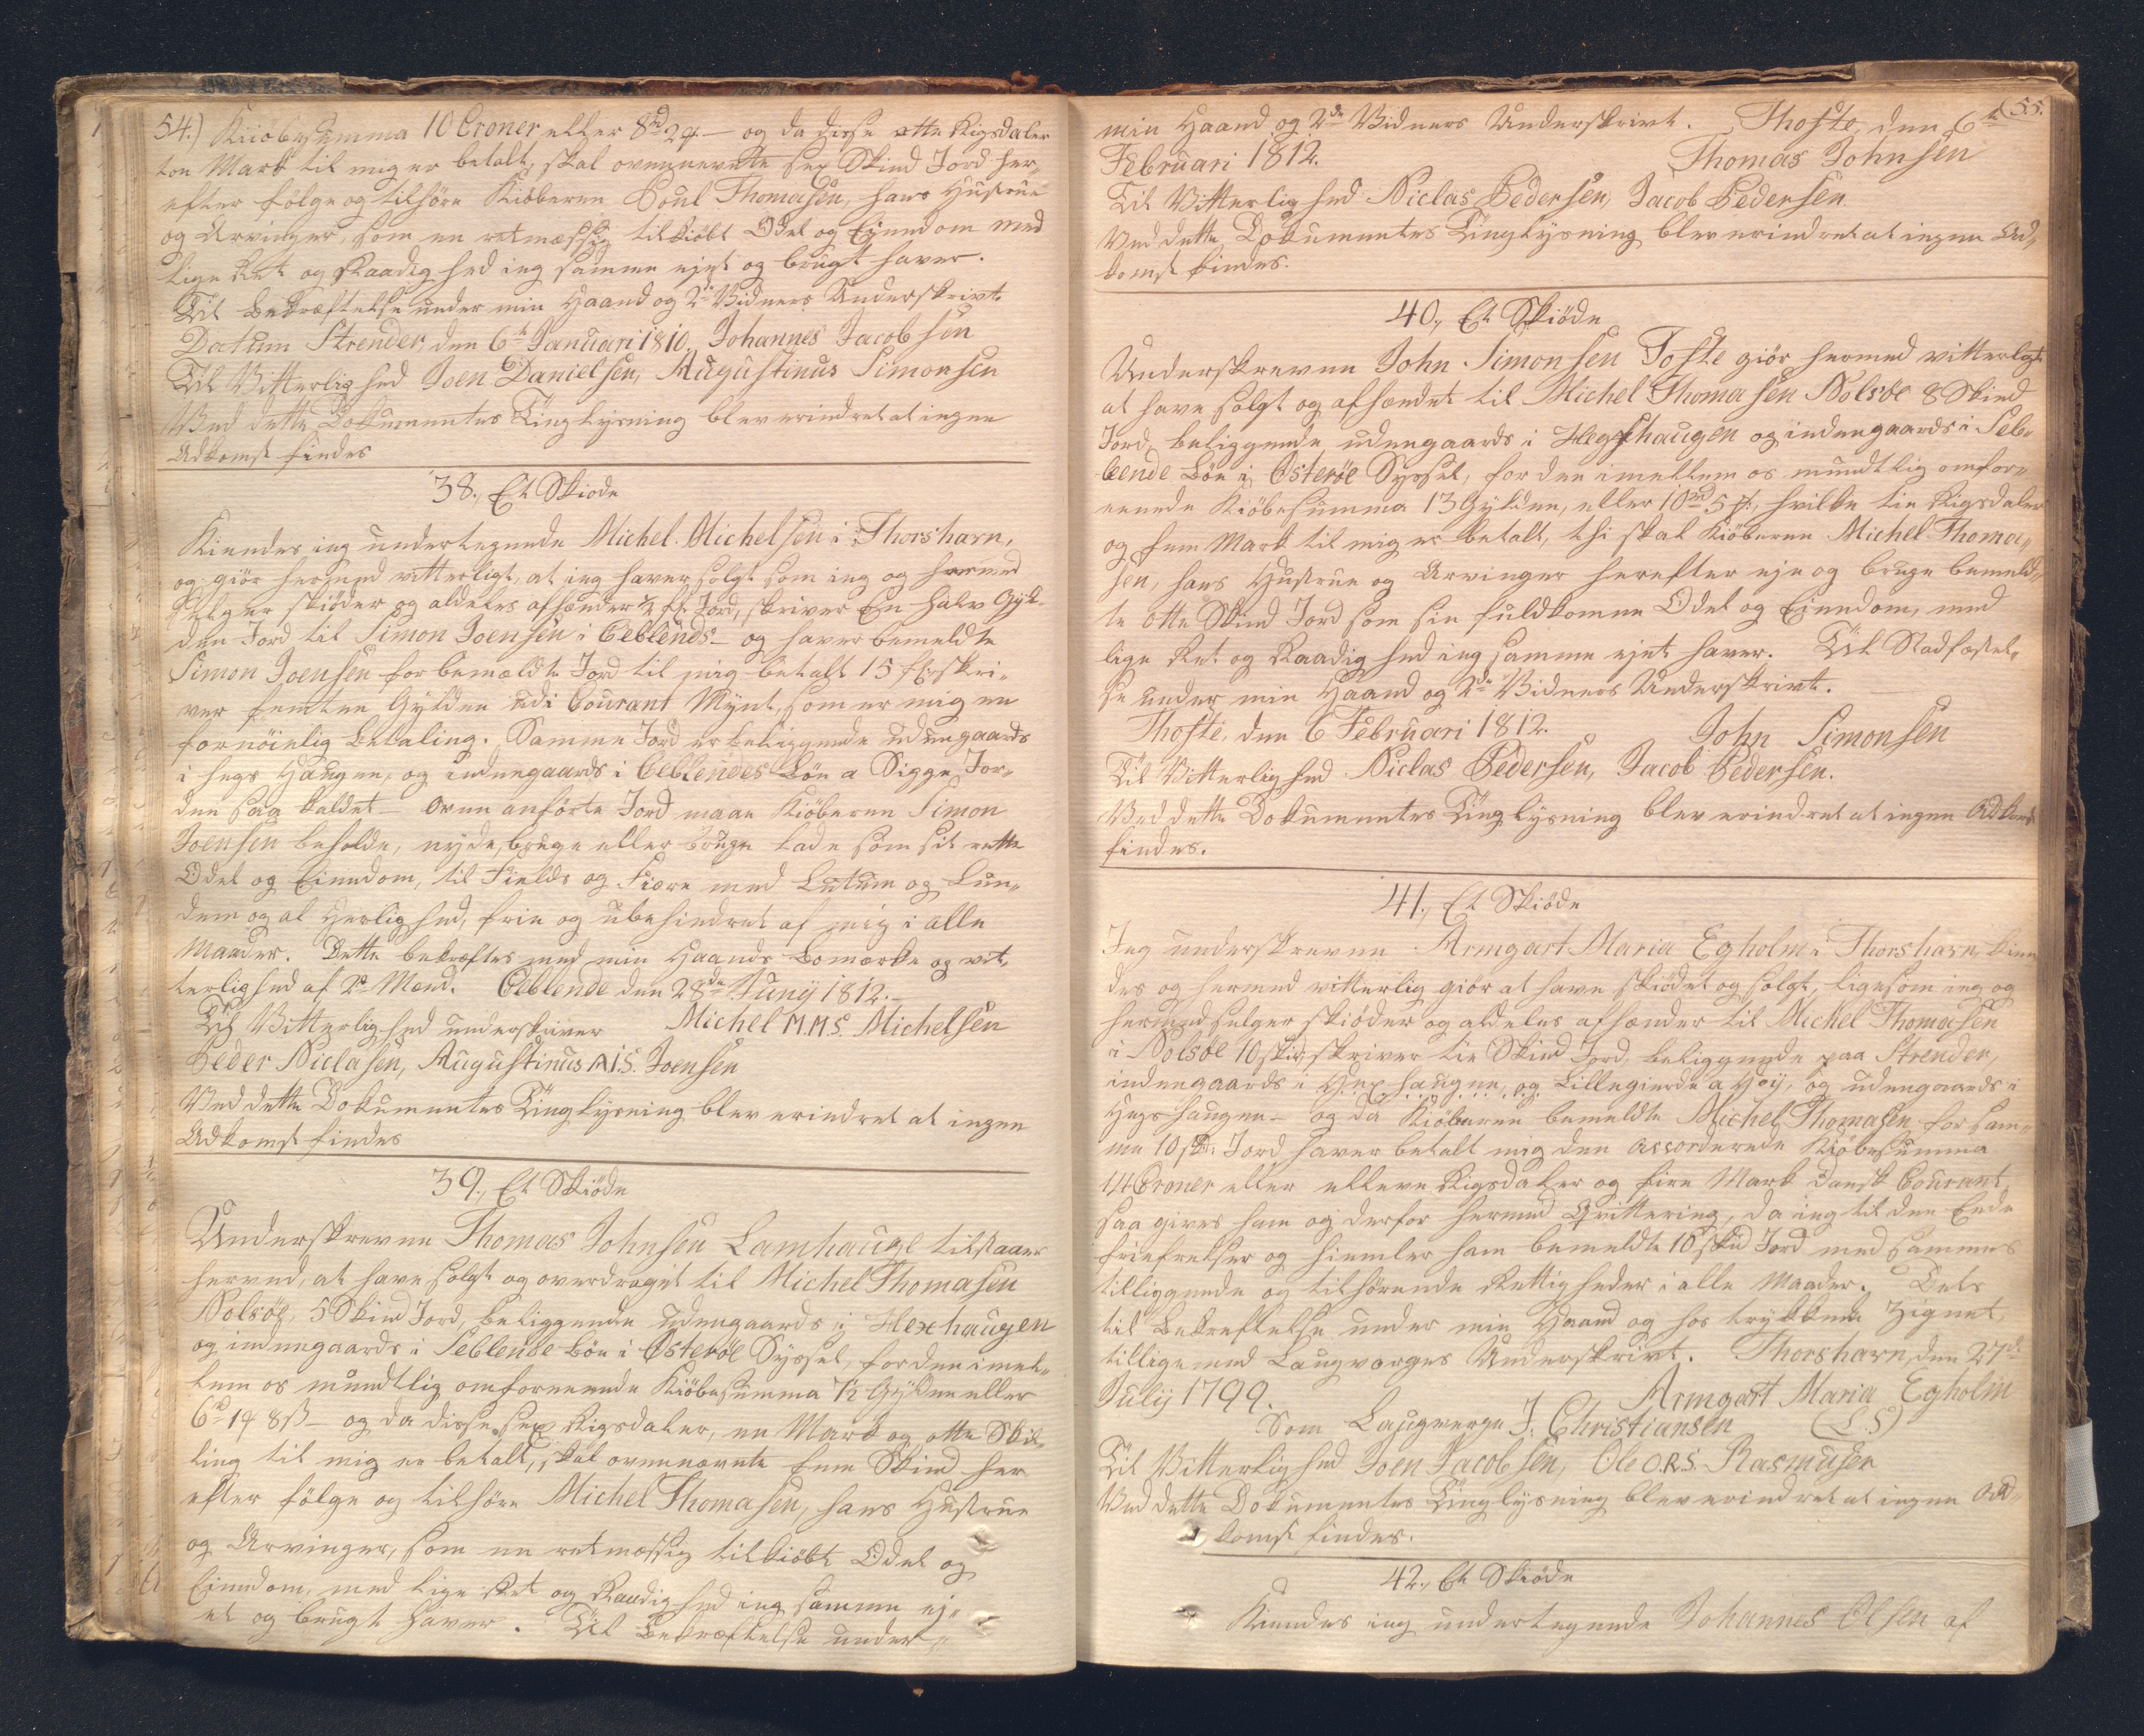 54.) Kiöbesumma 10 Croner eller 8rd 2# — og da disse otte Rigsdaler
toe Mark til mig er betalt, skal ovennevnte sex Skind Jord her„
efter følge og tilhöre Kiöberen Poul Thomasen, hans Hustrue
og Arvinger, som en retmæssig tilkiöbt Odel og Eiendom med
lige Ret og Raadighed ieg samme ejet og brugt haver.
Til Bekræftelse under min Haand og 2de Vidners Underskrivt.
Datum Strender, den 6te Januari 1810. Johannes Jacobsen
Til Vitterlighed Joen Danielsen, Augustinus Simonsen
Ved dette Dokumentes Tinglysning blev erindret at ingen
Adkomst findes
38., Et Skiöde
Kiendes ieg undertegnede Michel Michelsen i Thorshavn,
og giör hermed vitterligt, at ieg haver solgt som ieg og hermed
selger skiöder og aldeles afhænder ½ fl: Jord, skriver En halv Gyl„
den Jord til Simon Joensen i Oeblends — og haver bemeldte
Simon Joensen for bemældte Jord til mig betalt 15 fl: skri„
ver femten Gylden udi Courant Mynt, som er mig en
fornöielig Betaling. Samme Jord er beliggende udengaards
i Hegs Haugen, og indengaards i Oeblendes Böe a Sigge Jor„
den saa kaldet — Oven anförte Jord maae Kiöberen Simon
Joensen beholde, nyde, bruge eller bruge lade som sit rette
Odel og Eiendom, til Fields og Fiære med Lutum og Lun„
dem og al Herlighed, frie og ubehindret af mig i alle
Maader. Dette bekræftes med min Haands Bomærke og vit„
terlighed af 2de Mænd. Oeblende den 28de Junij 1812. —
Til Vitterlighed underskriver Michel M.M.S. Michelsen
Peder Niclasen, Augustinus A.I.S. Joensen
Ved dette Dokumentes Tinglysning blev erindret at ingen
Adkomst findes
39., Et Skiöde
Underskreven Thomas Johnsen Lamhauge tilstaaer
herved, at have solgt og overdraget til Michel Thomasen
Nolsöe, 5 Skind Jord, beliggende udengaards i Hexhaugen
og indengaards i Seblende Böe i Österöe Syssel, for den imel„
lem os mundtlig omforenende Kiöbesumma 7½ Gylden eller
6rd 1# 8ß — og da disse sex Rigsdaler, en Mark og otte Skil„
ling til mig er betalt, skal ovennævnte fem Skind her
efter følge og tilhöre Michel Thomasen, hans Hustrue
og Arvinger, som en retmæssig tilkiöbt Odel og
Eiendom, med lige Ret og Raadighed ieg samme ej„
et og brugt haver. Til Bekræftelse under„
55.
min Haand og 2de Vidners Underskrivt. Thofte, den 6te
Februari 1812. Thomas Johnsen
Til Vitterlighed Niclas Pedersen, Jacob Pedersen
Ved dette Dokumentes Tinglysning blev erindret at ingen Ad„
komst findes.
40., Et Skiöde
Underskreven John Simonsen Tofte giör hermed vitterligt
at have solgt og afhændet til Michel Thomasen Nolsöe 8 Skind
Jord, beliggende udengaards i Hegshaugen og indengaards i Seb„
lende Böe i Österöe Syssel, for den imellem os mundtlig omfor„
enende Kiöbesumma 13 Gylden, eller 10rd 5#, hvilke tie Rigsdaler
og fem Mark til mig er betalt, thi skal Kiöberen Michel Thoma„
sen, hans Hustrue og Arvinger herefter eje og bruge bemeld„
te otte Skind Jord som sin fuldkomne Odel og Eiendom, med
lige Ret og Raadighed ieg samme ejet haver. Til Stadfæstel„
se under min Haand og 2de Vidners Underskrivt.
Thofte, den 6 Februari 1812. John Simonsen
Til Vitterlighed Niclas Pedersen, Jacob Pedersen.
Ved dette Dokumentes Tinglysning blev erindret at ingen Adkomst
findes.
41., Et Skiöde
Jeg underskreven Armgart Maria Egholm i Thorshavn, kien
des og hermed vitterlig giör at have skiödet og solgt, ligesom ieg og
hermed selger skiöder og aldeles afhænder til Michel Thomasen
i Nolsöe 10 skd: skriver tie Skind Jord, beliggende paa Strender,
indengaards i Hexhaugen, og Lillegierde a Höij, og udengaards i
Hegshaugen — og da Kiöberen bemeldte Michel Thomasen for sam„
me 10 skd: Jord haver betalt mig den accorderede Kiöbesumma
14 Croner eller elleve Rigsdaler og fire Mark dansk Courant,
saa gives ham og derfor hermed Qvittering, da ieg til den Ende
friefrelser og hiemler ham bemeldte 10 skd Jord med sammes
tilliggende og tilhörende Rettigheder i alle Maader. Dets
til Bekreftelse under min Haand og hos trykkende Zignet
tilligemed Laugvarges Underskrivt. Thorshavn, den 27de
Julij 1799. Armgart Maria Egholm
Som Laugverge J. Christiansen (L.S)
Til Vitterlighed Joen Jacobsen, Ole O.R.S. Rasmusen
Ved dette Dokumentes Tinglysning blev erindret at ingen Ad„
komst findes.
42., Et Skiöde
Kiendes ieg undertegnede Johannes Olsen af